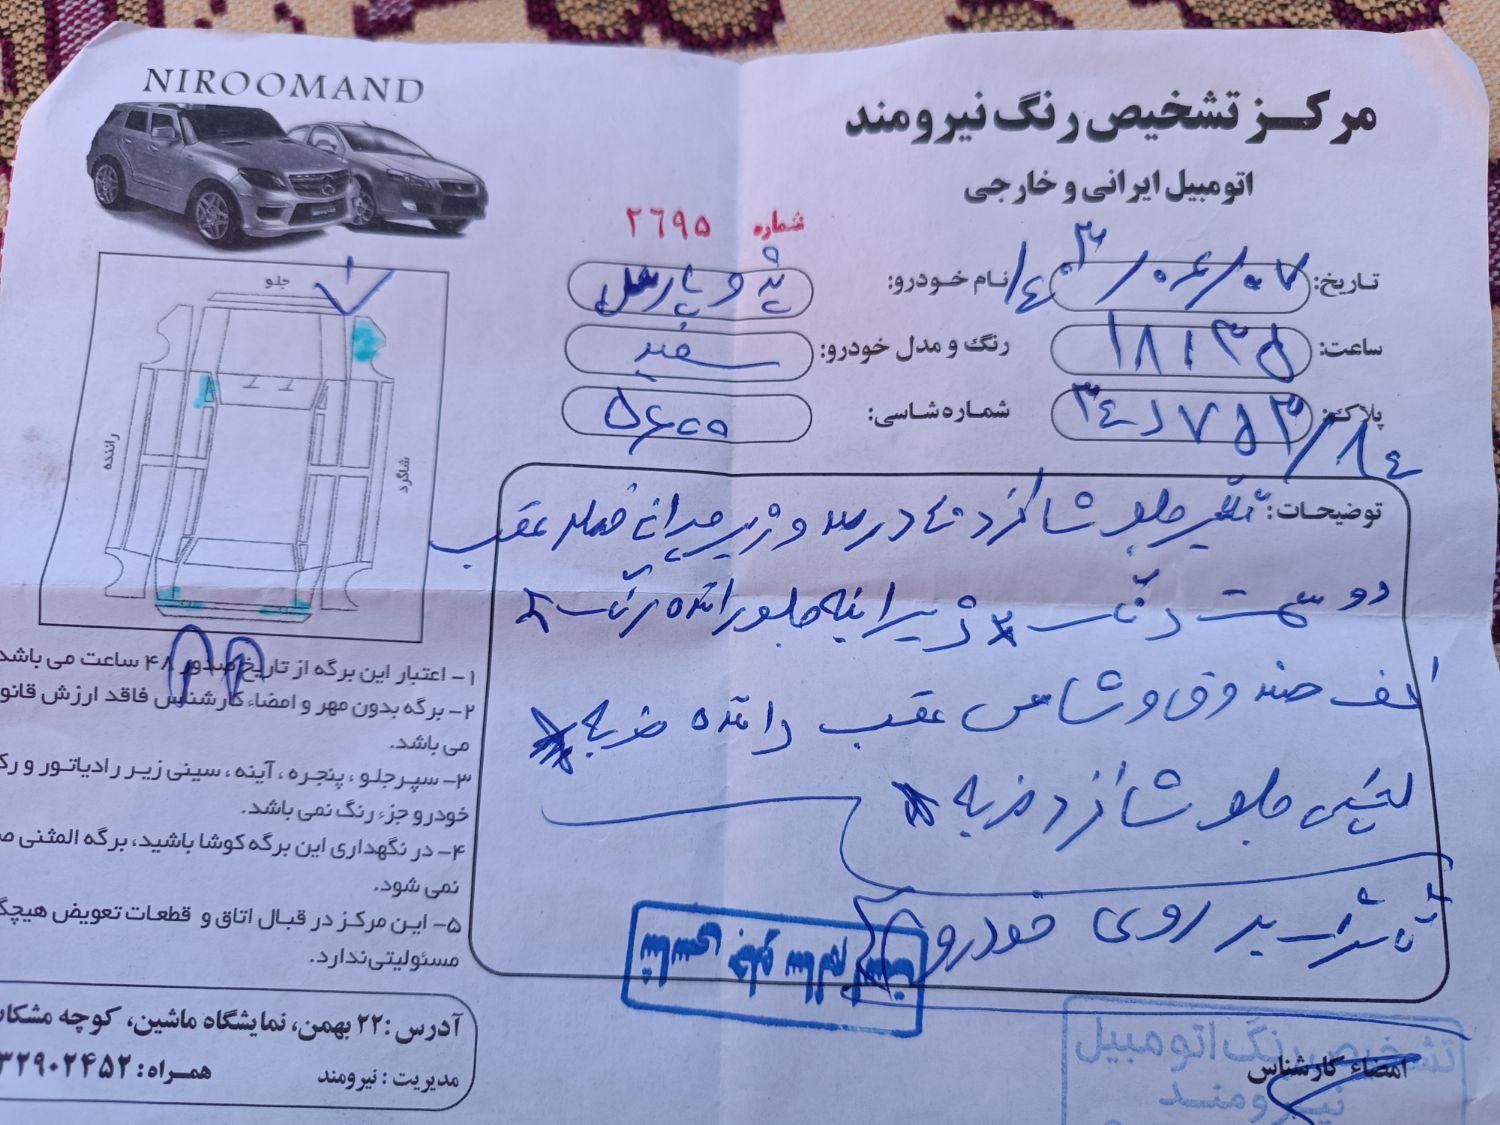 NIROOMAND
مرکز تشخیص رنگ نیرومند
اتومبیل ایرانی و خارجی
شماره ۲۶۹۵
تاریخ: ۱۴۰۳/۰۶/۰۷
نام خودرو: پژو پارس
ساعت: ۱۸:۳۵
رنگ و مدل خودرو: سفید
پلاک:
شماره شاسی: ۵۶۰۰
جلو
راننده
شاگرد
توضیحات: گلگیر جلو شاگرد درصد و زیر عقب
دو سمت رنگ جلو راننده رنگ
کف صندوق و شاسی عقب راننده ضربه
جلو شاگرد ضربه
بر روی خودرو
شاسی جلو سالم است
۱- اعتبار این برگه از تاریخ صدور ۴۸ ساعت می باشد
۲- برگه بدون مهر و امضاء کارشناس فاقد ارزش قانو
می باشد.
۳- سپر جلو ، پنجره ، آینه ، سینی زیر رادیاتور و رک
خودرو جزء رنگ نمی باشد.
۴- در نگهداری این برگه کوشا باشید، برگه المثنی ص
نمی شود.
۵- این مرکز در قبال اتاق و قطعات تعویض هیچگ
مسئولیتی ندارد.
آدرس: ۲۲ بهمن، نمایشگاه ماشین، کوچه مشکا
مدیریت : نیرومند
همراه: ۳۲۹۰۲۴۵۲
امضاء کارشناس
تشخیص رنگ اتومبیل
نیرومند